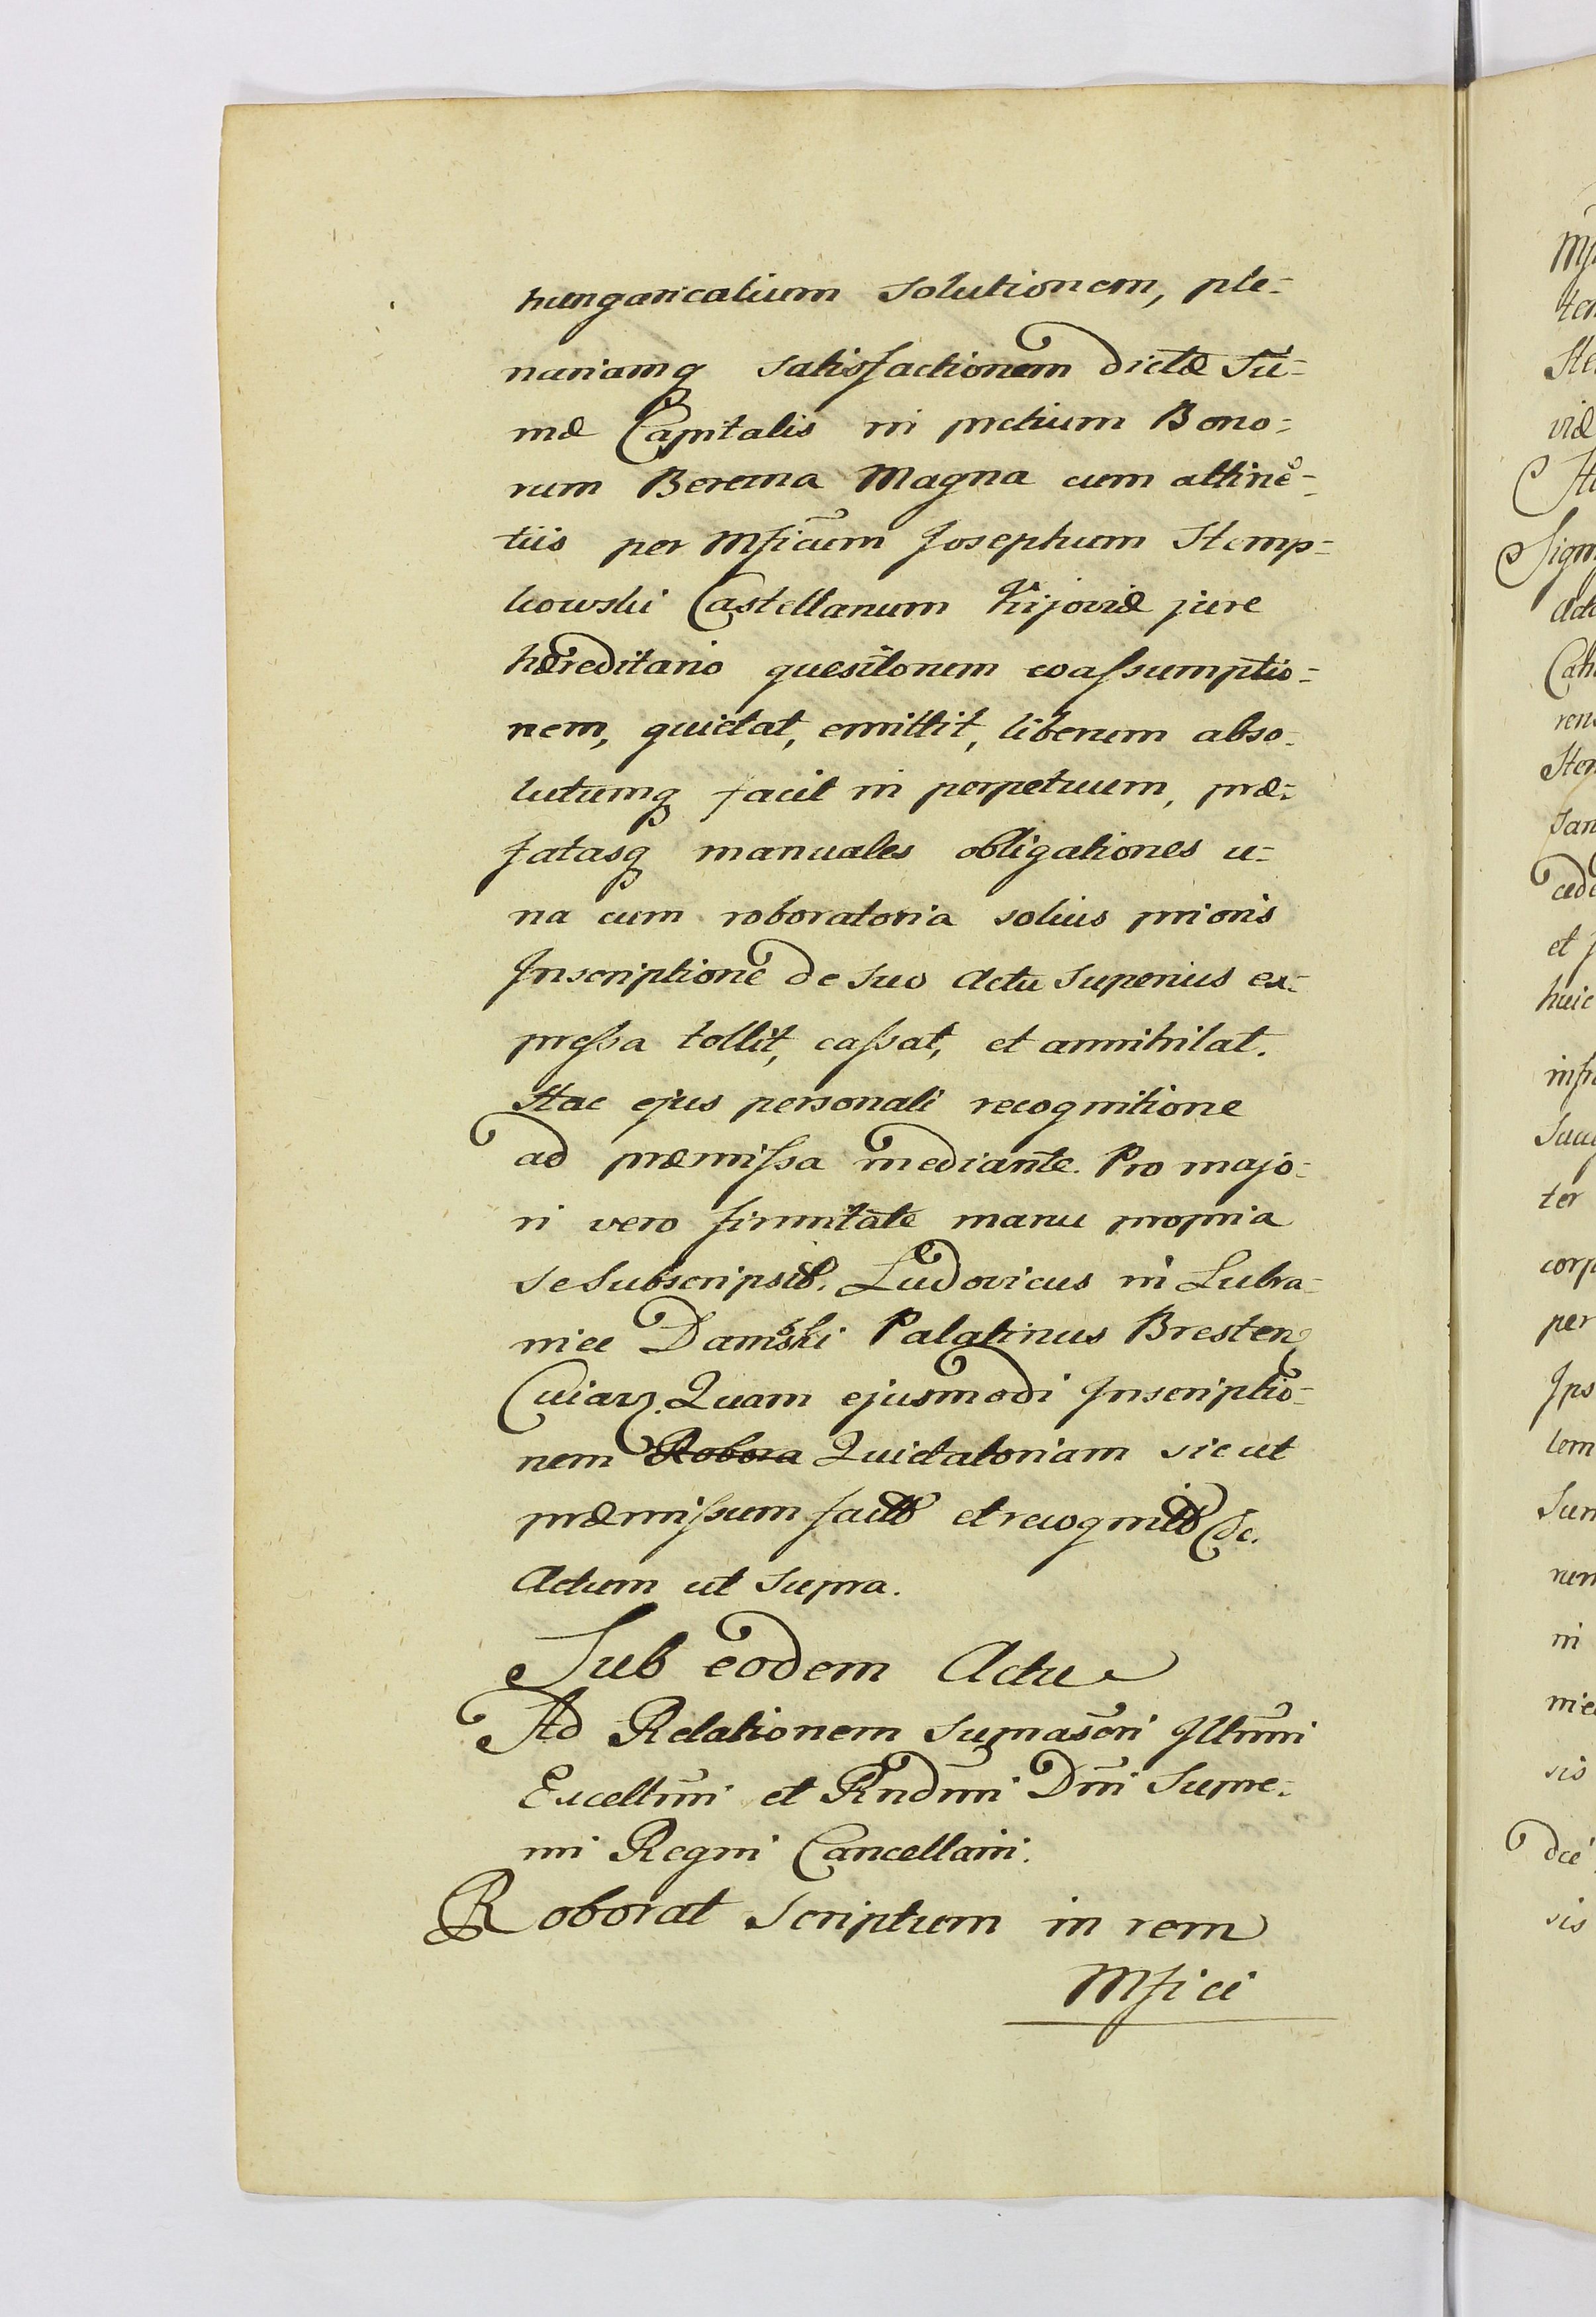 hungaricalium Solutionem, ple=
nariamq satisfactionem dictæ Sū=
mæ Capitalis in pretium Bono=
rum Berezna Magna cum attinē=
tiis per Mficum Josephum Stemp=
kowski Castellanum Kijoviæ jure
hæreditario quesitorum coaſsumptio=
nem, quietat, emittit, liberum abso=
lutumq facit in perpetuum, præ=
fatasq manuales obligationes u=
na cum roboratoria solius prioris
Inscriptione de suo Actu Superius ex=
preſsa tollit, caſsat, et annihilat.
Hac ejus personali recognitione
ad præmiſsa mediante. Pro majo=
ri vero firmitate manu propria
se Subscripsit. Ludovicus in Lubra=
niec Damski Palatinus Bresten
Cuiav. Quam ejusmodi Inscriptio=
nem Robora Quietatoriam sic ut
præmiſsum facit et recognit &c.
Actum ut Supra.
Sub eodem Actu
Ad Relationem Supraseri Illmi
Excellmi et Rndmi Dni Supre=
mi Regni Cancellarii.
Roborat Scriptum in rem
Mfici
viæ
et
huic
ter
per
in
sis
sis